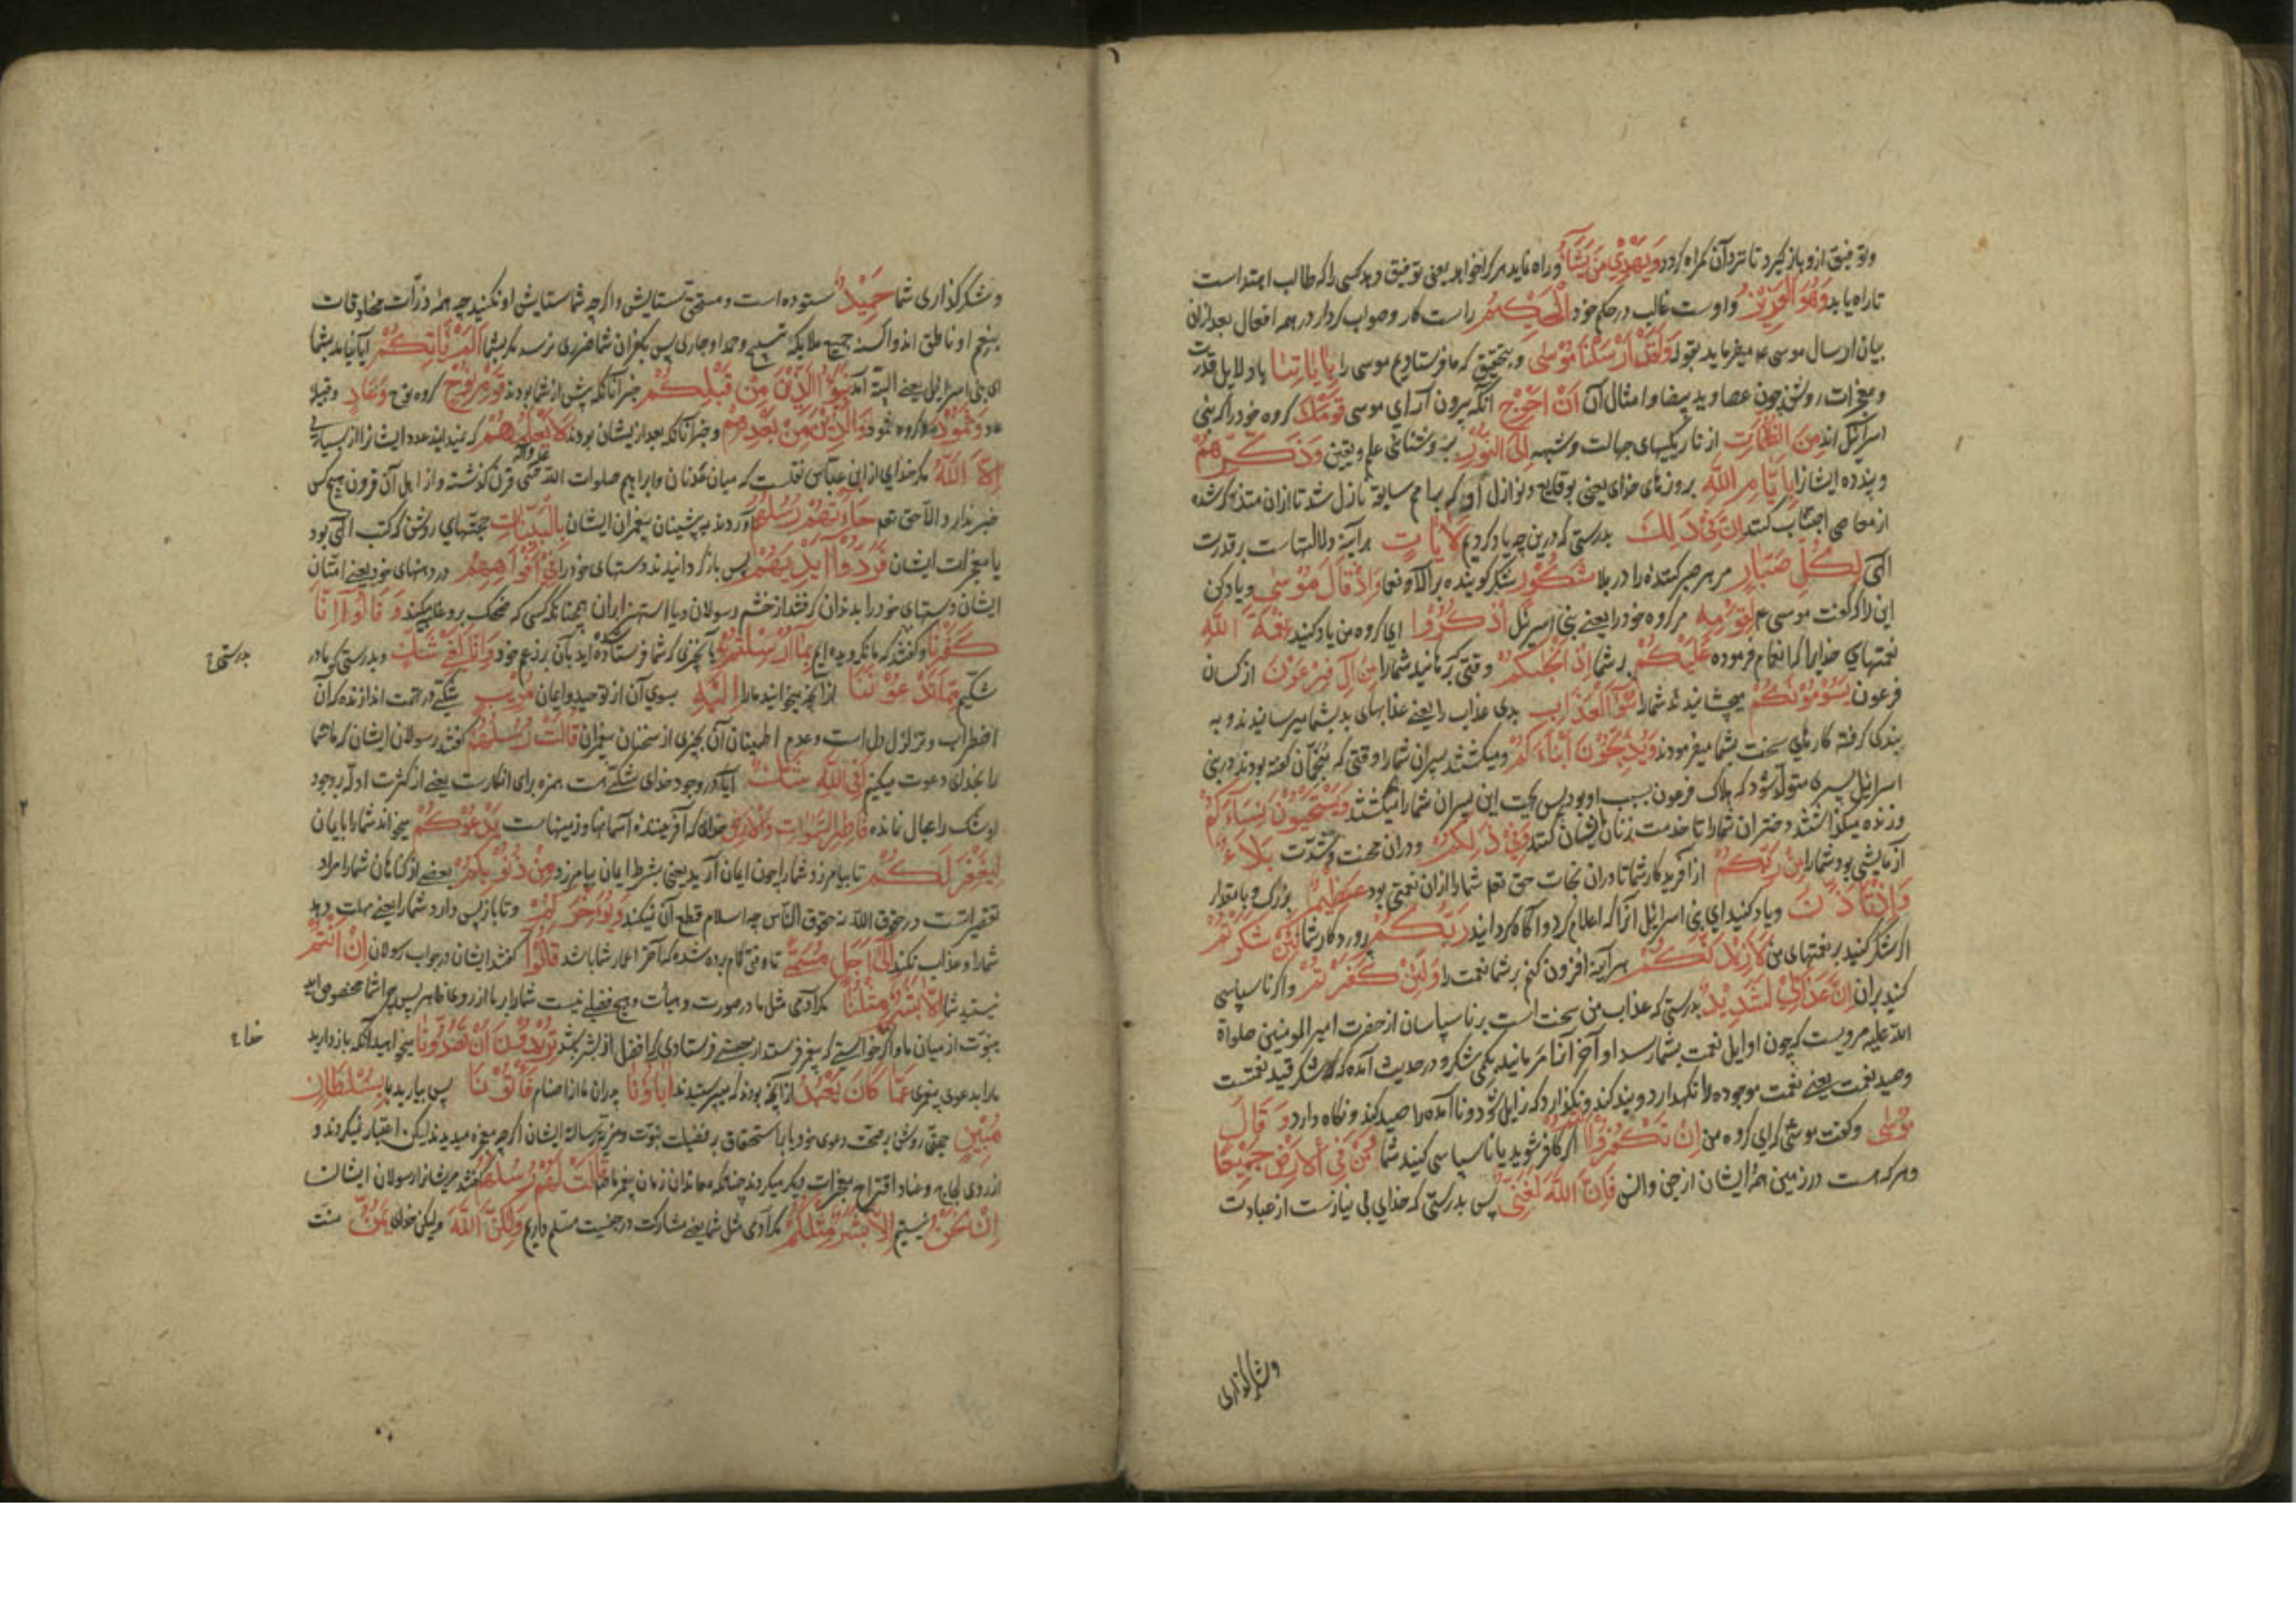 و توفیق ازو باز گیرد تا نزد آن گمراه گردد وَيَهْدِي مَن يَشَاءُ و راه نماید هر کرا خواهد یعنی توفیق دهد کسی را که طالب اهتداست
تا راه یابد وَهُوَ الْعَزِيزُ و اوست غالب در حکم خود الْحَكِيمُ راست کار و صواب کردار در همه افعال بعد ازان
بیان ارسال موسی ع میفرماید بقوله وَلَقَدْ أَرْسَلْنَا مُوسَى و بتحقیق که ما فرستادیم موسی را بِآيَاتِنَا با دلایل قدرت
و معجزات روشن چون عصا و ید بیضا و امثال آن أَنْ أَخْرِجْ آنکه بیرون آر ای موسی قَوْمَكَ گروه خود را که بنی
اسرائیل اند مِنَ الظُّلُمَاتِ از تاریکیهای جهالت و شبهه إِلَى النُّورِ به روشنائی علم و یقین وَذَكِّرْهُمْ
و پند ده ایشانرا بِأَيَّامِ اللَّهِ بروزهای خدای یعنی بوقایع و نوازل که بامم سابقه نازل شد تا ازان متذکر شده
از معاصی اجتناب کنند إِنَّ فِي ذَلِكَ بدرستی که درین چه یاد کردیم لَآيَاتٍ هر آینه دلالتهاست بر قدرت
الهی لِكُلِّ صَبَّارٍ مر هر صبر کننده را در بلا شَكُورٍ شکر گوینده بر آلاء و نعما وَإِذْ قَالَ مُوسَى و یاد کن
این را که گفت موسی ع لِقَوْمِهِ مر گروه خود را یعنی بنی اسرئیل اذْكُرُوا ای گروه من یاد کنید نِعْمَةَ اللَّهِ
نعمتهای خدایرا که انعام فرموده عَلَيْكُمْ بر شما إِذْ أَنْجَاكُمْ وقتی که برهانید شما را مِنْ آلِ فِرْعَوْنَ از کسان
فرعون يَسُومُونَكُمْ میچشانیدند شما را سُوءَ الْعَذَابِ بدی عذاب را یعنی عذابهای بد بشما میرسانیدند و به
بندگی گرفته کارهای سخت بشما میفرمودند وَيُذَبِّحُونَ أَبْنَاءَكُمْ و میکشتند پسران شما را وقتی که منجمان گفته بودند در بنی
اسرائیل پسری متولد شود که هلاک فرعون بسبب او بود پس بجهت این پسران شما را میکشتند وَيَسْتَحْيُونَ نِسَاءَكُمْ
و زنده میگذاشتند دختران شما را تا خدمت زنان ایشان کنند وَفِي ذَلِكُمْ و دران محنت و شدت بَلَاءٌ
آزمایشی بود شما را مِنْ رَبِّكُمْ از آفریدکار شما تا دران نجات حق تعم شما را ازان نعمتی بود عَظِيمٌ بزرک و بامقدار
وَإِذْ تَأَذَّنَ و یاد کنید ای بنی اسرائیل آنرا که اعلام کرد و آگاه گردانید رَبُّكُمْ پروردکار شما لَئِنْ شَكَرْتُمْ
اگر شکر کنید بر نعمتهای من لَأَزِيدَنَّكُمْ هر آینه افزون کنم بر شما نعمت را وَلَئِنْ كَفَرْتُمْ و اگر ناسپاسی
کنید بران إِنَّ عَذَابِي لَشَدِيدٌ بدرستی که عذاب من سخت است بر ناسپاسان از حضرت امیر المومنین صلواة
الله علیه مرویست که چون اوایل نعمت بشما رسد اواخر آنرا مرمانید بکمی شکر و در حدیث آمده که شکر قید نعمتست
و صید نعمت یعنی نعمت موجوده را نکهدارد و بند کند و نگذارد که زایل شود و نا آمده را صید کند و نگاه دارد وَقَالَ
مُوسَى و گفت موسی که ای گروه من إِنْ تَكْفُرُوا أَنْتُمْ اگر کافر شوید یا ناسپاسی کنید شما وَمَنْ فِي الْأَرْضِ جَمِيعًا
و هر که هست در زمین همه ایشان از جن و انس فَإِنَّ اللَّهَ لَغَنِيٌّ پس بدرستی که خدای بی نیازست از عبادت
و شکر گذاری
و شکر گذاری شما حَمِيدٌ ستوده است و مستحق ستایش و اگر چه شما ستایش او نکنید چه همه ذرات مخلوقات
بنعم او ناطق اند و السنه جمیع ملایکه بتسبیح و حمد او جاری پس بکفران شما ضرری نرسد مگر بشما أَلَمْ يَأْتِكُمْ آیا نیامد بشما
ای بنی اسرائیل یعنی البته آمد نَبَأُ الَّذِينَ مِنْ قَبْلِكُمْ خبر آنانکه پیش از شما بودند قَوْمِ نُوحٍ گروه نوح وَعَادٍ و قبیله
عاد وَثَمُودَ و گروه ثمود وَالَّذِينَ مِنْ بَعْدِهِمْ و خبر آنانکه بعد از ایشان بودند لَا يَعْلَمُهُمْ که نمیداند عدد ایشانرا از بسیاری
إِلَّا اللَّهُ مگر خدای از ابن عباس نقلست که میان عدنان و ابراهیم صلوات الله سی قرن گذشته و از اهل آن قرون هیچ کس
خبر ندارد الا حق تعم جَاءَتْهُمْ رُسُلُهُمْ آوردند به پیشینان پیغمبران ایشان بِالْبَيِّنَاتِ حجتهای روشن که کتب الهی بود
یا معجزات ایشان فَرَدُّوا أَيْدِيَهُمْ پس باز گردانیدند دستهای خود را فِي أَفْوَاهِهِمْ در دهنهای خود یعنی امتان
ایشان دستهای خود را بدندان گرفتند از خشم رسولان و یا استهزا بران همچنانکه کسی که ضحک برو غلبه کند وَقَالُوا إِنَّا
كَفَرْنَا و گفتند که ما نگرویده ایم بِمَا أُرْسِلْتُمْ بِهِ بآنچیزی که شما فرستاده شده اید بآن بزعم خود وَإِنَّا لَفِي شَكٍّ و بدرستی که ما در
شکیم مِمَّا تَدْعُونَنَا از آنچه میخوانید ما را إِلَيْهِ بسوی آن از توحید و ایمان مُرِيبٍ شکی در تهمت اندازنده که آن
اضطراب و تزلزل دل است و عدم اطمینان آن بچیزی از سخنان پیغمبران قَالَتْ رُسُلُهُمْ گفتند رسولان ایشان که ما شما
را بخدای دعوت میکنیم أَفِي اللَّهِ شَكٌّ آیا در وجود خدای شکی هست همزه برای انکارست یعنی از کثرت ادله بر وجود
او شک را مجال نمانده فَاطِرِ السَّمَوَاتِ وَالْأَرْضِ خدای که آفریننده آسمانها و زمینهاست يَدْعُوكُمْ میخواند شما را بایمان
لِيَغْفِرَ لَكُمْ تا بیامرزد شما را چون ایمان آرید یعنی بشرط ایمان بیامرزد مِنْ ذُنُوبِكُمْ بعضی از گناهان شما را مراد
در حقوق الله نه حقوق الناس چه اسلام قطع آن نمیکند وَيُؤَخِّرَكُمْ و تا باز پس دارد شما را یعنی مهلت دهد
شما را و عذاب نکند إِلَى أَجَلٍ مُسَمًّى تا وقتی نام برده شده که آخر اعمار شما باشد قَالُوا گفتند ایشان در جواب رسولان إِنْ أَنْتُمْ
نیستید شما إِلَّا بَشَرٌ مِثْلُنَا مگر آدمی مثل ما در صورت و هیأت و هیچ فضلی نیست شما را بر ما از روی ظاهر پس چرا شما مخصوص اید
بنبوت از میان ما و اگر خواستی که پیغمبر فرستد از جنسی فرستادی که افضل از بشر بودند تُرِيدُونَ أَنْ تَصُدُّونَا میخواهید آنکه باز دارید
ما را بدعوی پیغمبری عَمَّا كَانَ يَعْبُدُ از آنچه بودند که میپرستیدند آبَاؤُنَا پدران ما از اصنام فَأْتُونَا پس بیارید بما بِسُلْطَانٍ
مُبِينٍ حجتی روشن بر صحت دعوی خود یا بر استحقاق بر فضیلت نبوت و مزیت رسالة ایشان اگر چه معجزه میدیدند لیکن اعتبار نمیکردند و
از روی لجاج و عناد اقتراح معجزات دیگر میکردند چنانکه معاندان زمان پیغمبر ما قَالَتْ لَهُمْ رُسُلُهُمْ گفتند مر ایشانرا رسولان ایشان
إِنْ نَحْنُ نیستیم إِلَّا بَشَرٌ مِثْلُكُمْ مگر آدمی مثل شما یعنی مشارکت در جنسیت مسلم داریم وَلَكِنَّ اللَّهَ ولیکن خدای يَمُنُّ منت
بدرستی